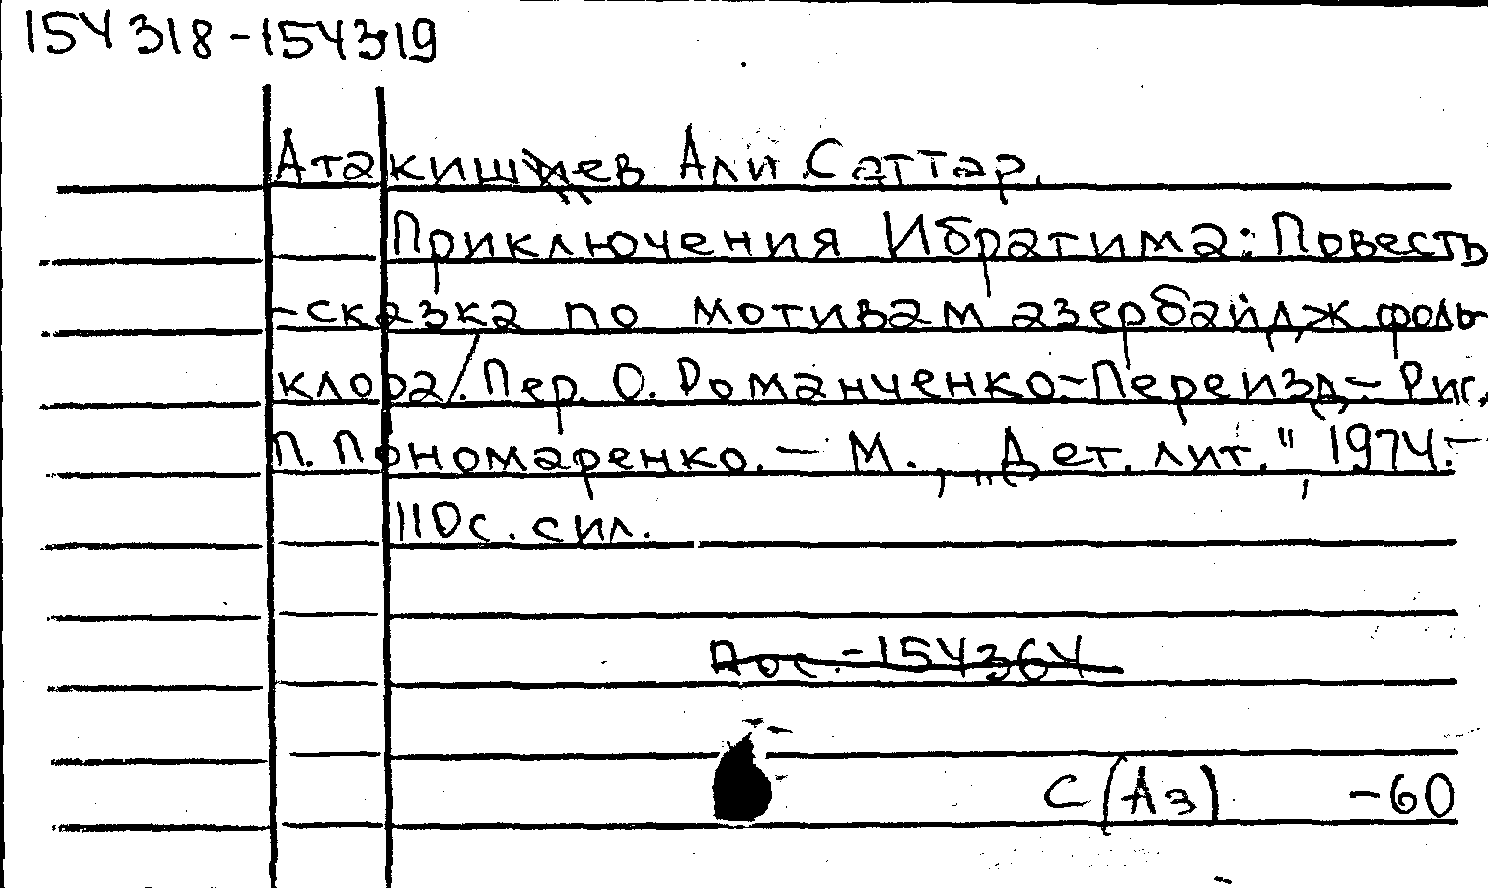 154318-154319
Атакишиев Али Саттар.
Приключения Ибрагима: Повесть
-сказка по мотивам азербайдж фоль
клора/. Пер. О. Романченко.-Переизд.- Рис.
П. Пономаренко. - М., „Дет. лит.", 1974.-
110с. с ил.
Пос.-154364
С(Аз) -60